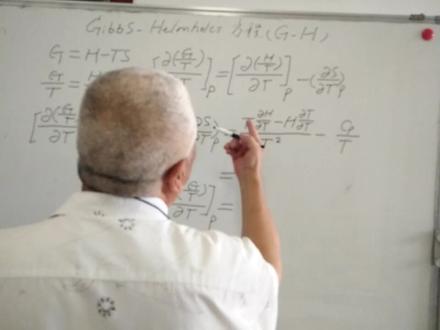 Gibbs-Helmholtz 方程(G-H)
G = H-TS [∂(G/T)/∂T]p = [∂(H/T)/∂T]p - (∂S/∂T)p
G/T = H
[∂(G/T)/∂T ∂S/∂T)p = T ∂H/∂T - H ∂T/∂T / T² - Cp/T
=
(G/T)/∂T]p =